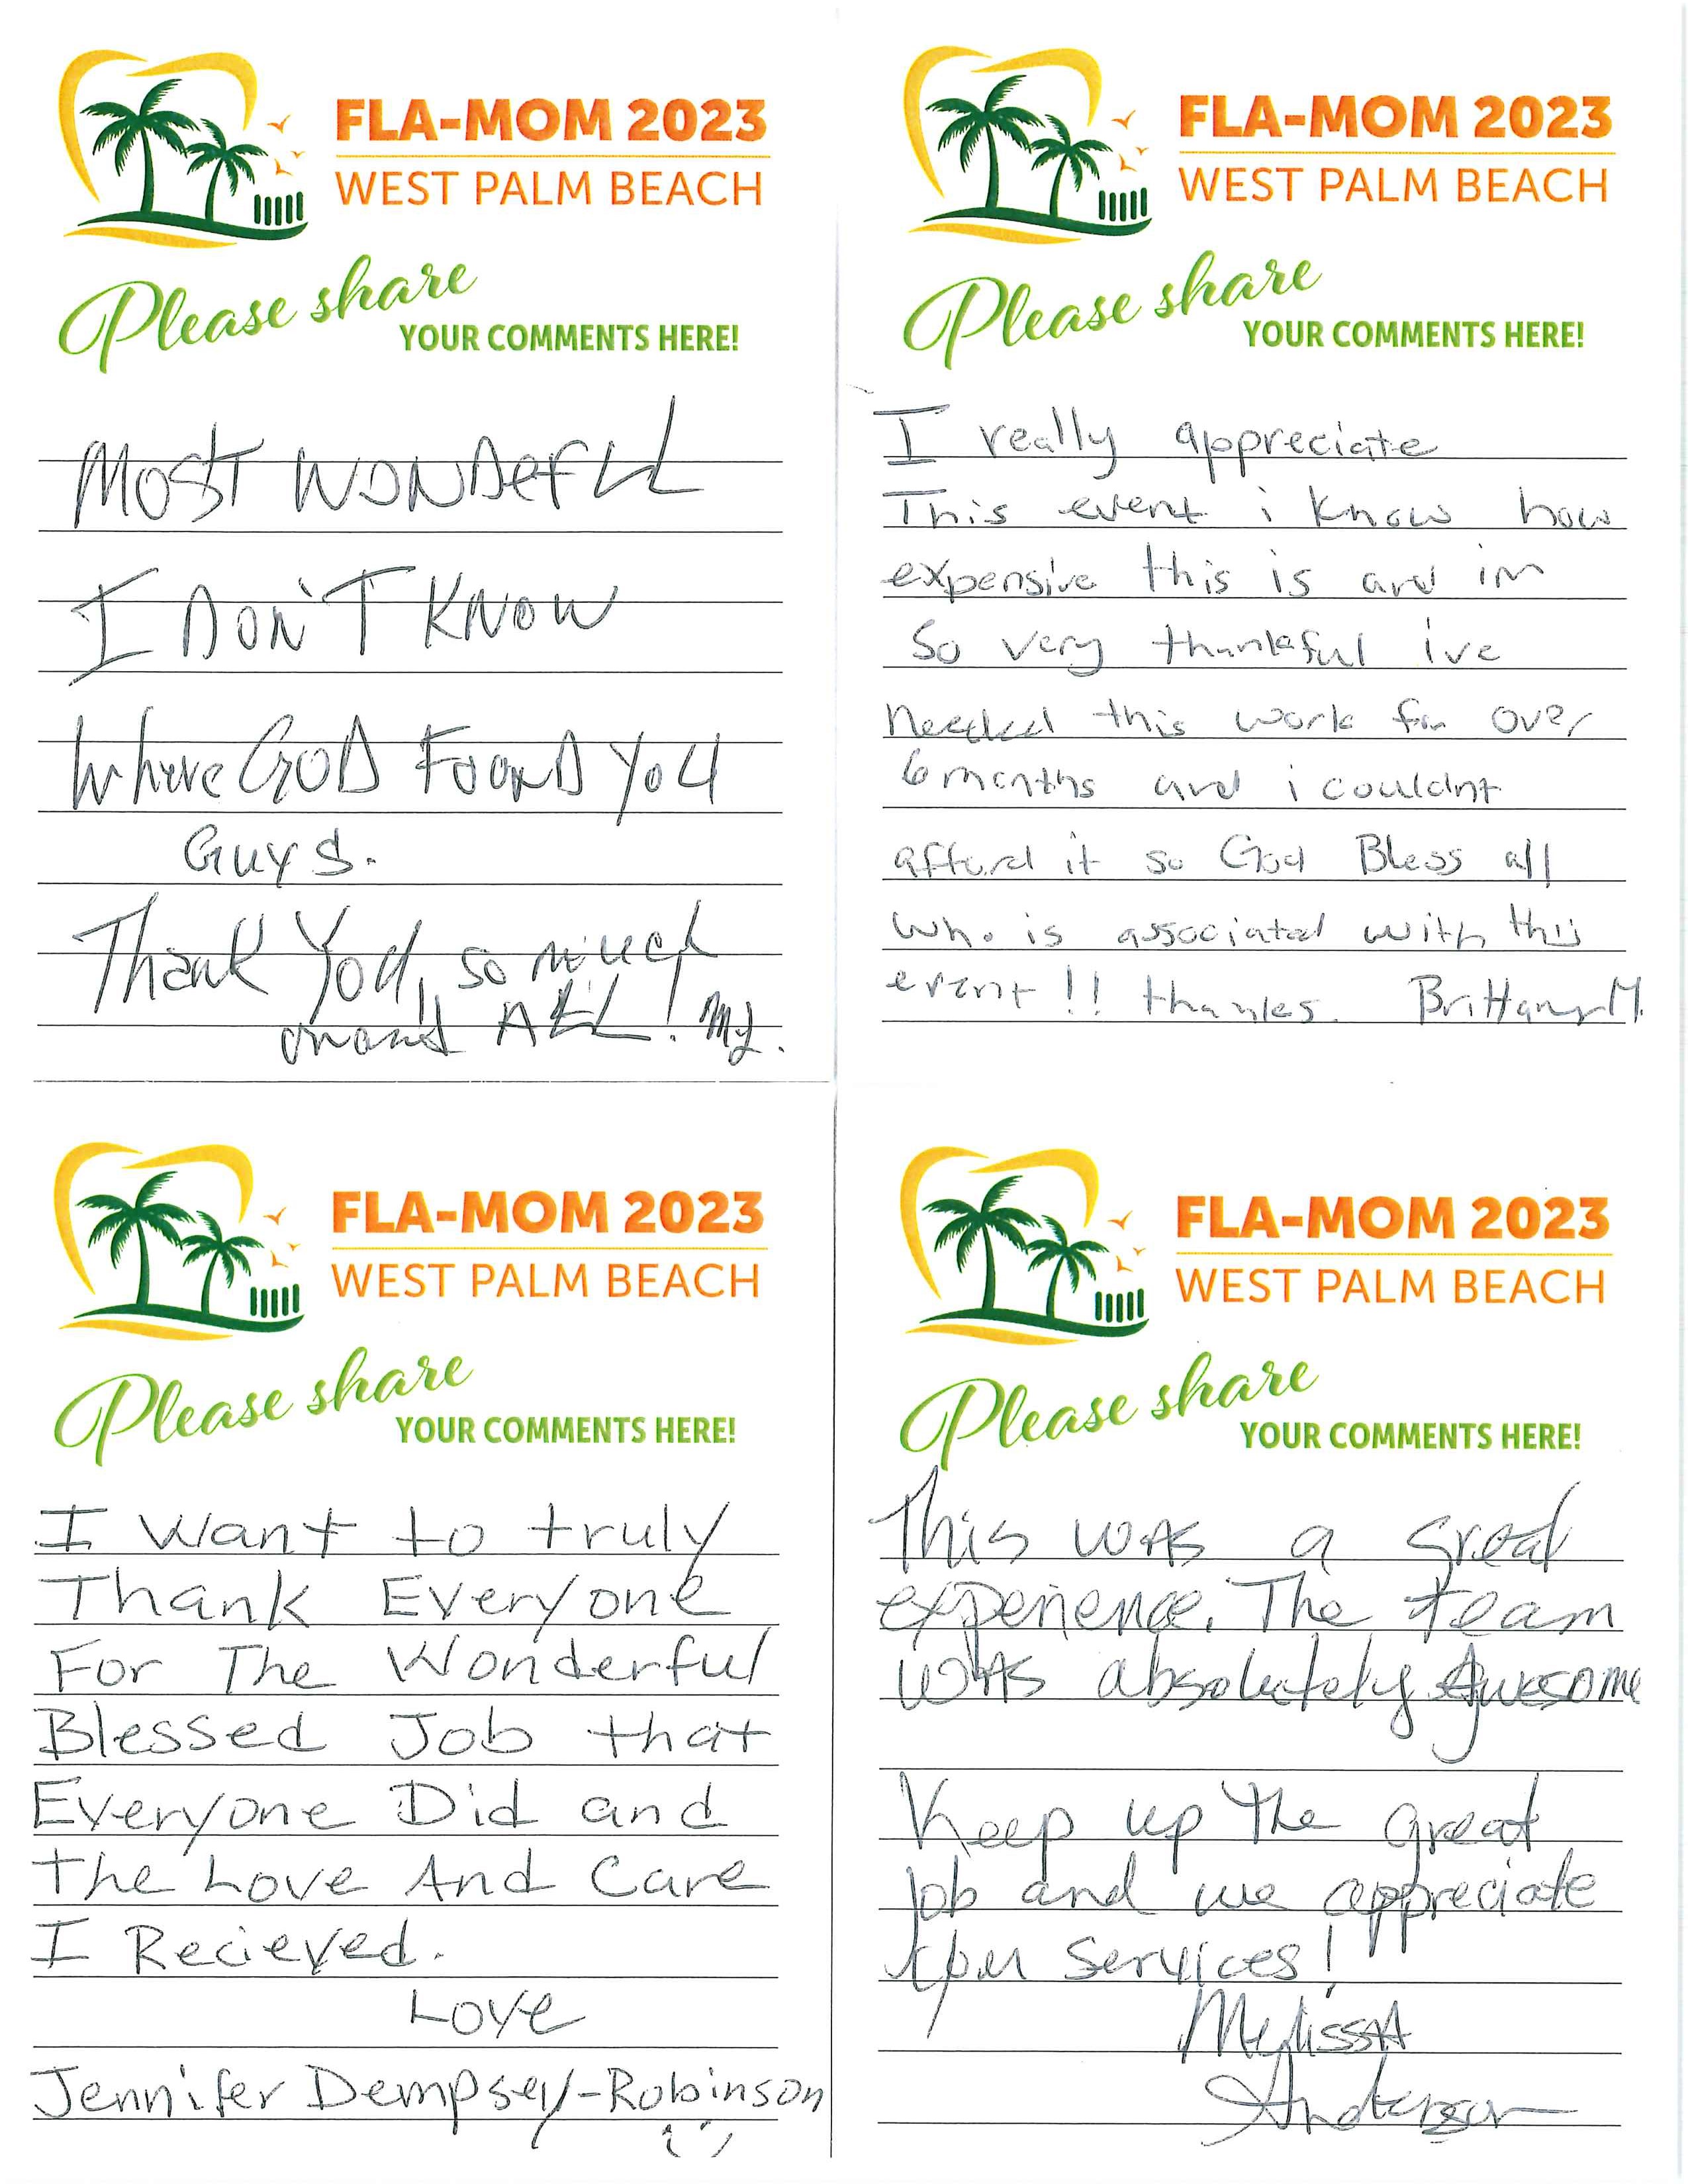 FLA-MOM 2023
WEST PALM BEACH
Please share
YOUR COMMENTS HERE!
MOST WONDERFUL
I DON'T KNOW
Where GOD FOUND YOU
GUYS.
Thank You, so much
ALL! My.
FLA-MOM 2023
WEST PALM BEACH
Please share
YOUR COMMENTS HERE!
I really appreciate
This event i know how
expensive this is and im
So very thankful ive
needed this work for over
6 months and i couldnt
afford it so God Bless all
who is associated with this
event!! thanks. Brittany M.
FLA-MOM 2023
WEST PALM BEACH
Please share
YOUR COMMENTS HERE!
I want to truly
Thank Everyone
For The Wonderful
Blessed Job that
Everyone Did and
the Love And Care
I Recieved.
Love
Jennifer Dempsey-Robinson
FLA-MOM 2023
WEST PALM BEACH
Please share
YOUR COMMENTS HERE!
This was a great
experience. The team
was absolutely Awesome
Keep up the great
job and we appreciate
your services!
Melissa
Anderson